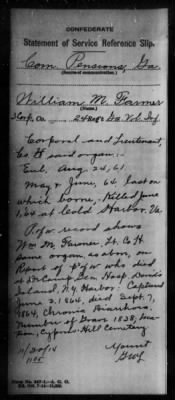 CONFEDERATE
Statement of Service Reference Slip.
Com. Pensions, Ga.
(Source of communication.)
William M. Farmer
(Name.)
Corp, Co. 24 Regt Ga. Vol. Inf.
Corporal and Lieutenant,
Co. H said organ.
Enl. Aug. 24, 61.
May & June, 64, last on
which borne, Killed June
1, 64 at Cold Harbor, Va.
P of w record shows
Wm M. Farmer, Lt. Co H
same organ, as abov, on
Report of p of w who died
at DeCamp Gen Hosp, Davids
Island, N.Y. Harbor: Captured
June 2, 1864, died Sept. 7,
1864, Chronic Diarrhoea,
Number of Grave 1838;
Cypress Hill Cemetery
11/20/15